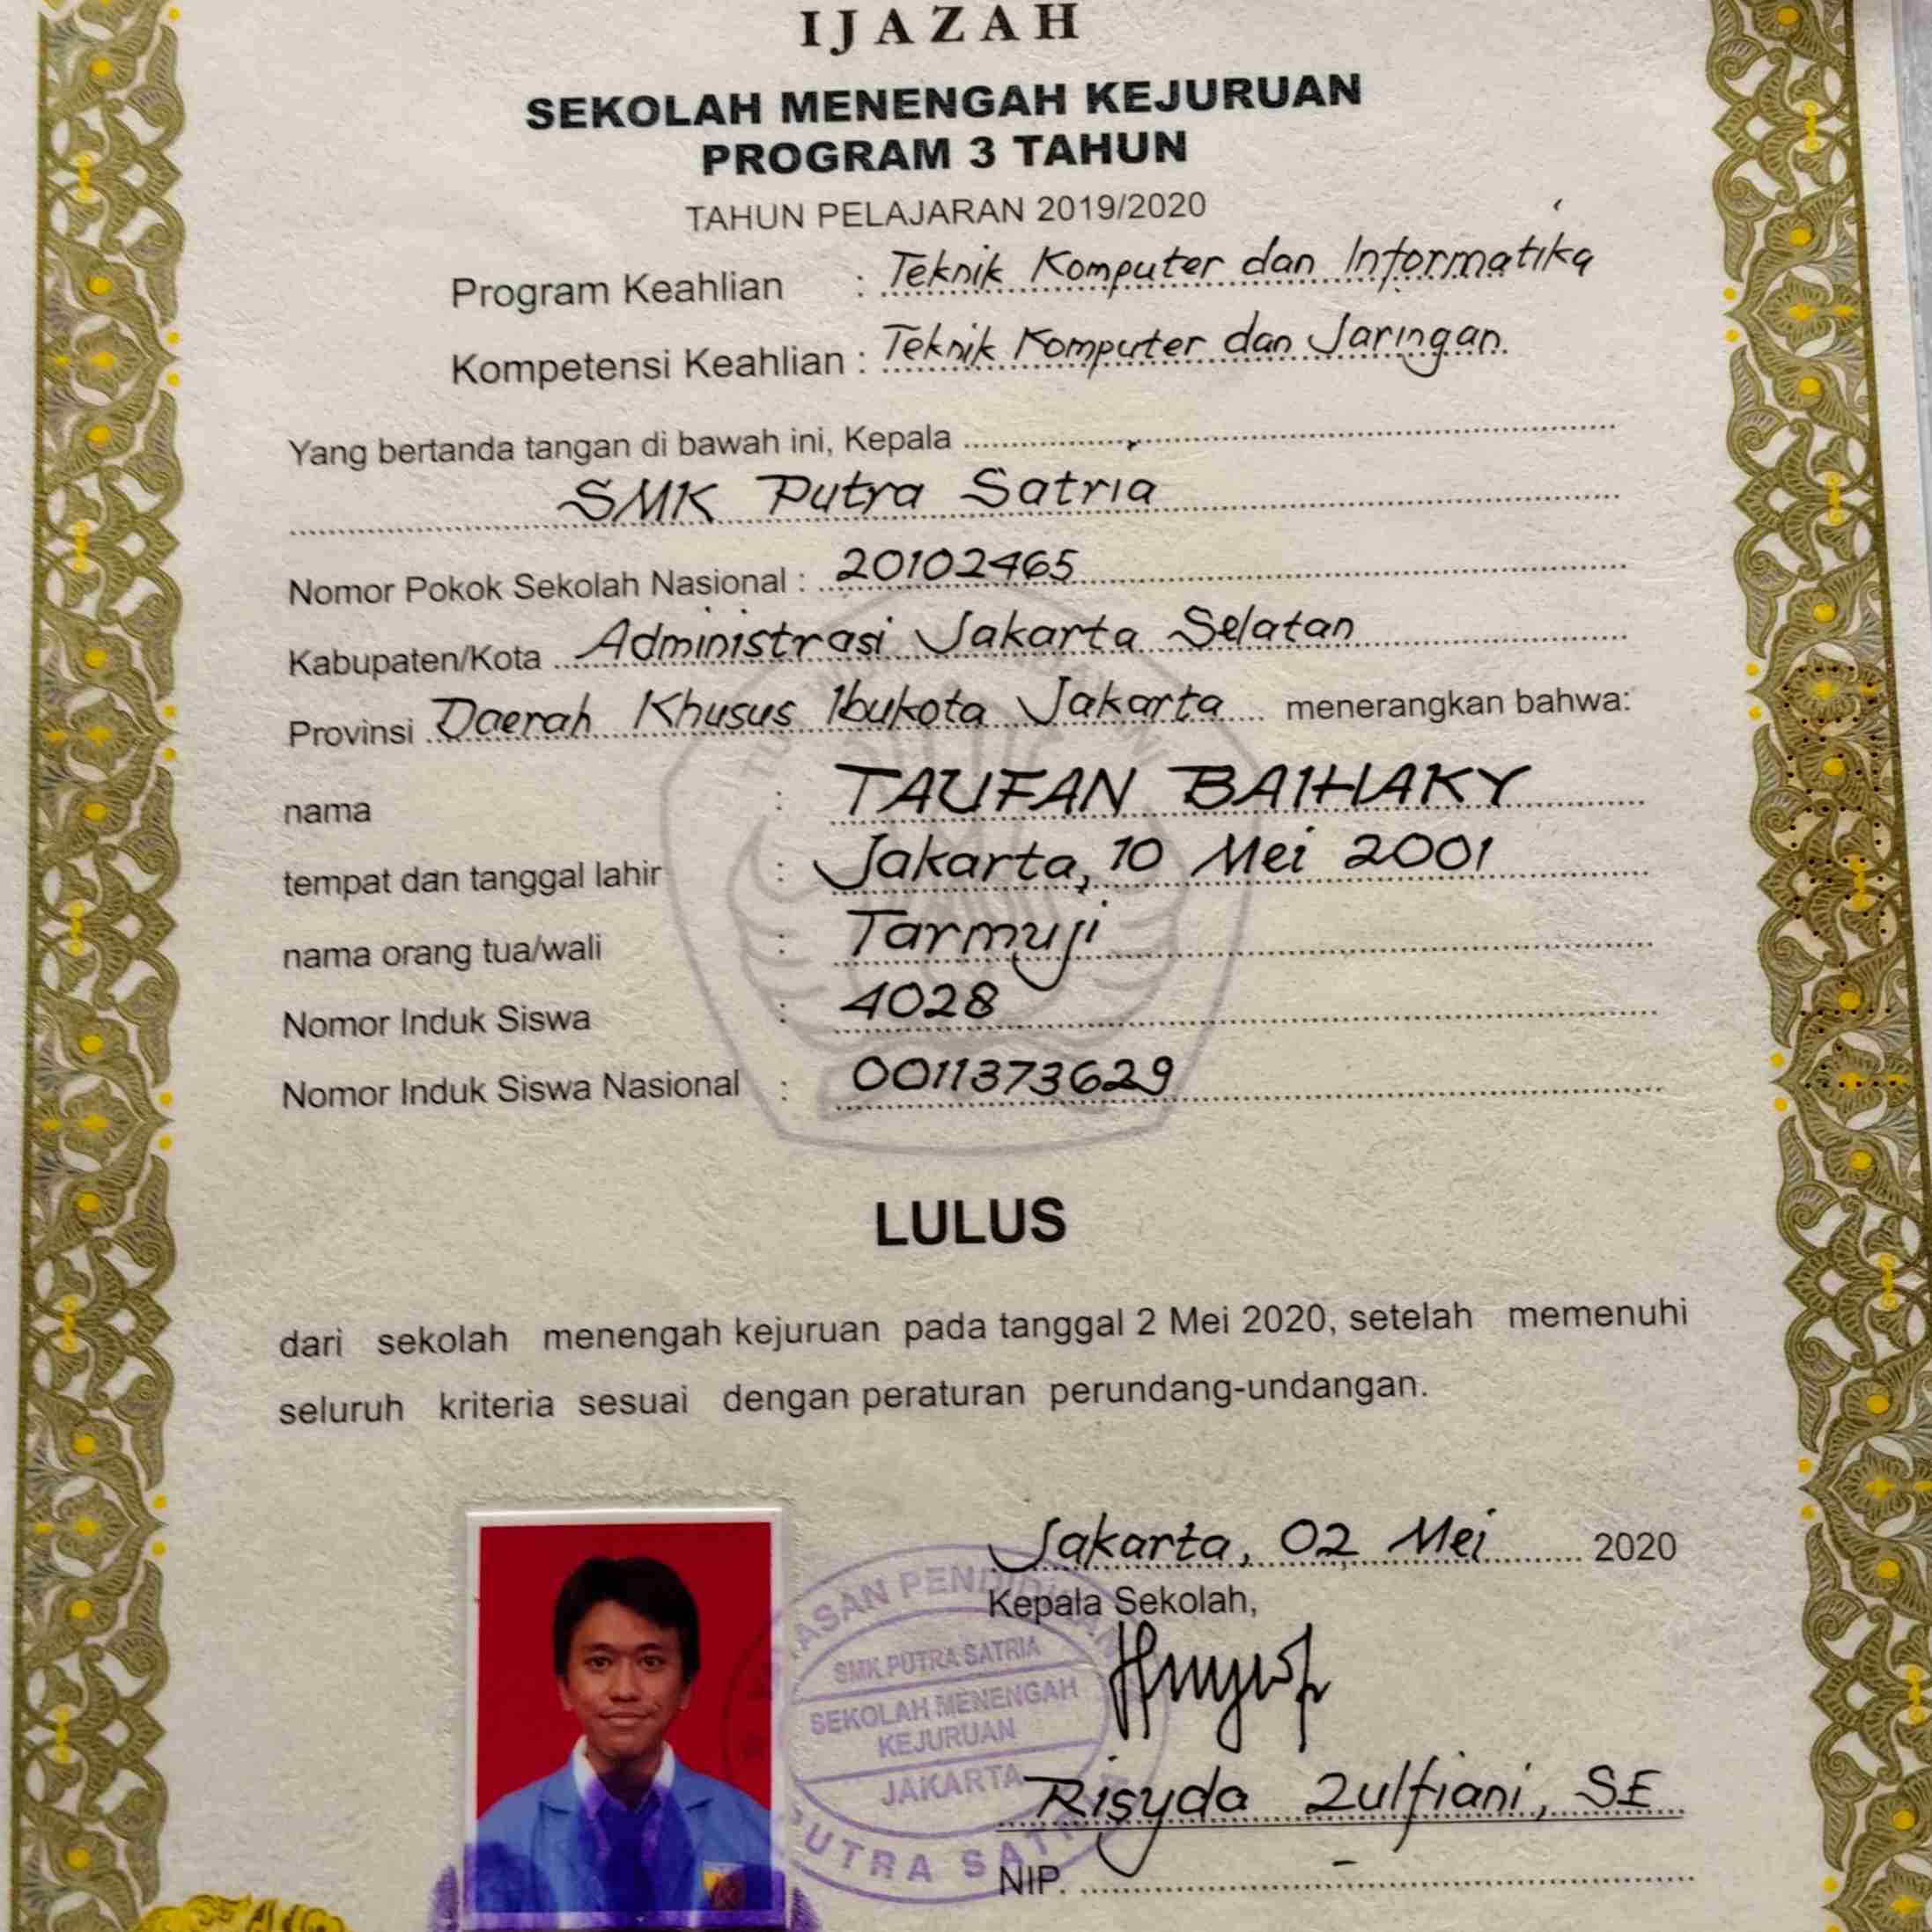 IJAZAH
SEKOLAH MENENGAH KEJURUAN
PROGRAM 3 TAHUN
TAHUN PELAJARAN 2019/2020
Program Keahlian : Teknik Komputer dan Informatika
Kompetensi Keahlian : Teknik Komputer dan Jaringan
Yang bertanda tangan di bawah ini, Kepala
SMK Putra Satria
Nomor Pokok Sekolah Nasional : 20102465
Kabupaten/Kota Administrasi Jakarta Selatan
Provinsi Daerah Khusus Ibukota Jakarta menerangkan bahwa:
nama : TAUFAN BAIHAKY
tempat dan tanggal lahir : Jakarta, 10 Mei 2001
nama orang tua/wali : Tarmuji
Nomor Induk Siswa : 4028
Nomor Induk Siswa Nasional : 0011373629
LULUS
dari sekolah menengah kejuruan pada tanggal 2 Mei 2020, setelah memenuhi
seluruh kriteria sesuai dengan peraturan perundang-undangan.
Jakarta, 02 Mei 2020
Kepala Sekolah,
SMK PUTRA SATRIA
SEKOLAH MENENGAH
KEJURUAN
JAKARTA
Risyda Zulfiani, SE
NIP. -